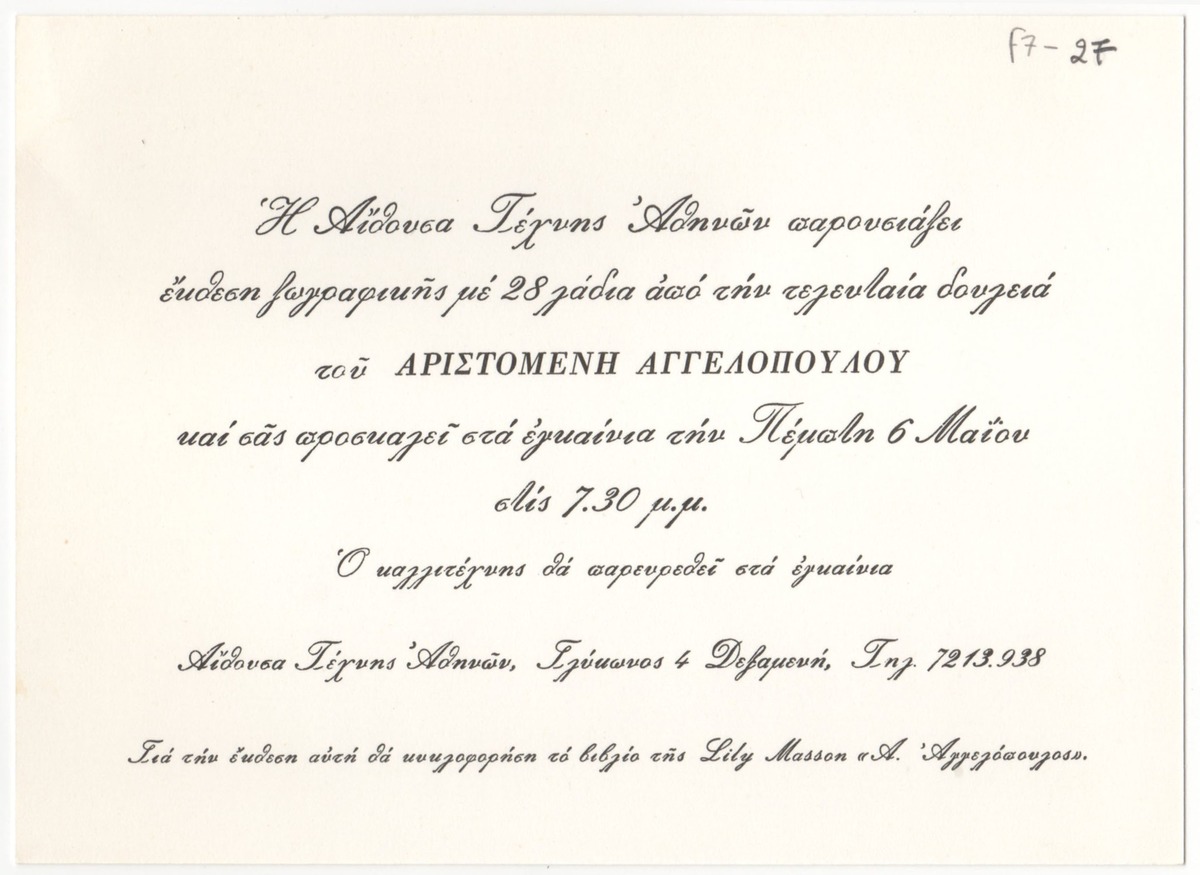 F7-27
Ἡ Αἴθουσα Τέχνης Ἀθηνῶν παρουσιάζει
ἔκθεση ζωγραφικῆς μέ 28 λάδια ἀπό τήν τελευταία δουλειά
τοῦ ΑΡΙΣΤΟΜΕΝΗ ΑΓΓΕΛΟΠΟΥΛΟΥ
καί σᾶς προσκαλεῖ στά ἐγκαίνια τήν Πέμπτη 6 Μαΐου
στίς 7.30 μ.μ.
Ὁ καλλιτέχνης θά παρευρεθεῖ στά ἐγκαίνια
Αἴθουσα Τέχνης Ἀθηνῶν, Γλύκωνος 4 Δεξαμενή, Τηλ. 7213.938
Γιά τήν ἔκθεση αὐτή θά κυκλοφορήση τό βιβλίο τῆς Lily Masson «Α. Ἀγγελόπουλος».